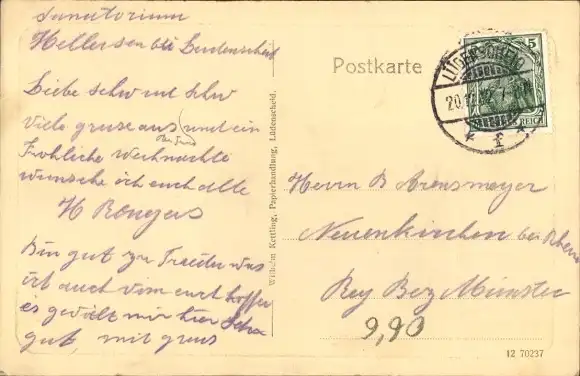 Sanatorium
Hellersen bei Luedenscheid
Liebe schw und schw
viele grüse aus und ein
Frohliche Weihnachte
wunsche ich euch alle
H Rougers
Bin gut zu
ist auch von euch hoffe
es gevält mir hier
gut, mit grus
Wilhelm Kettling, Papierhandlung, Lüdenscheid.
Postkarte
LÜDENSCHEID
20.12.12. 7-8 N
* f *
5
REICH
Herrn B Arensmeyer
Neuenkirchen bei Rheine
Bey Bez Münster
9,90
12 70237